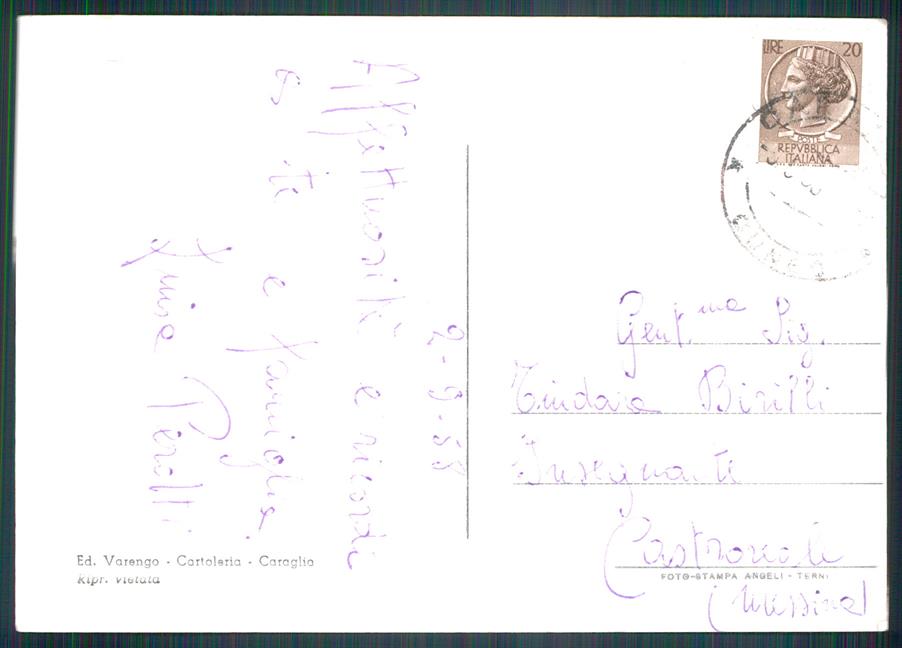 2-9-58
Affettuosità e ricordi
a te
e famiglia.
Perotti
LIRE 20
POSTE
REPVBBLICA
ITALIANA
CUNEO
Gent.ma Sig.
Tindara Birilli
Insegnante
Castroreale
(Messina)
Ed. Varengo - Cartoleria - Caraglio
Ripr. vietata
FOTO-STAMPA ANGELI - TERNI